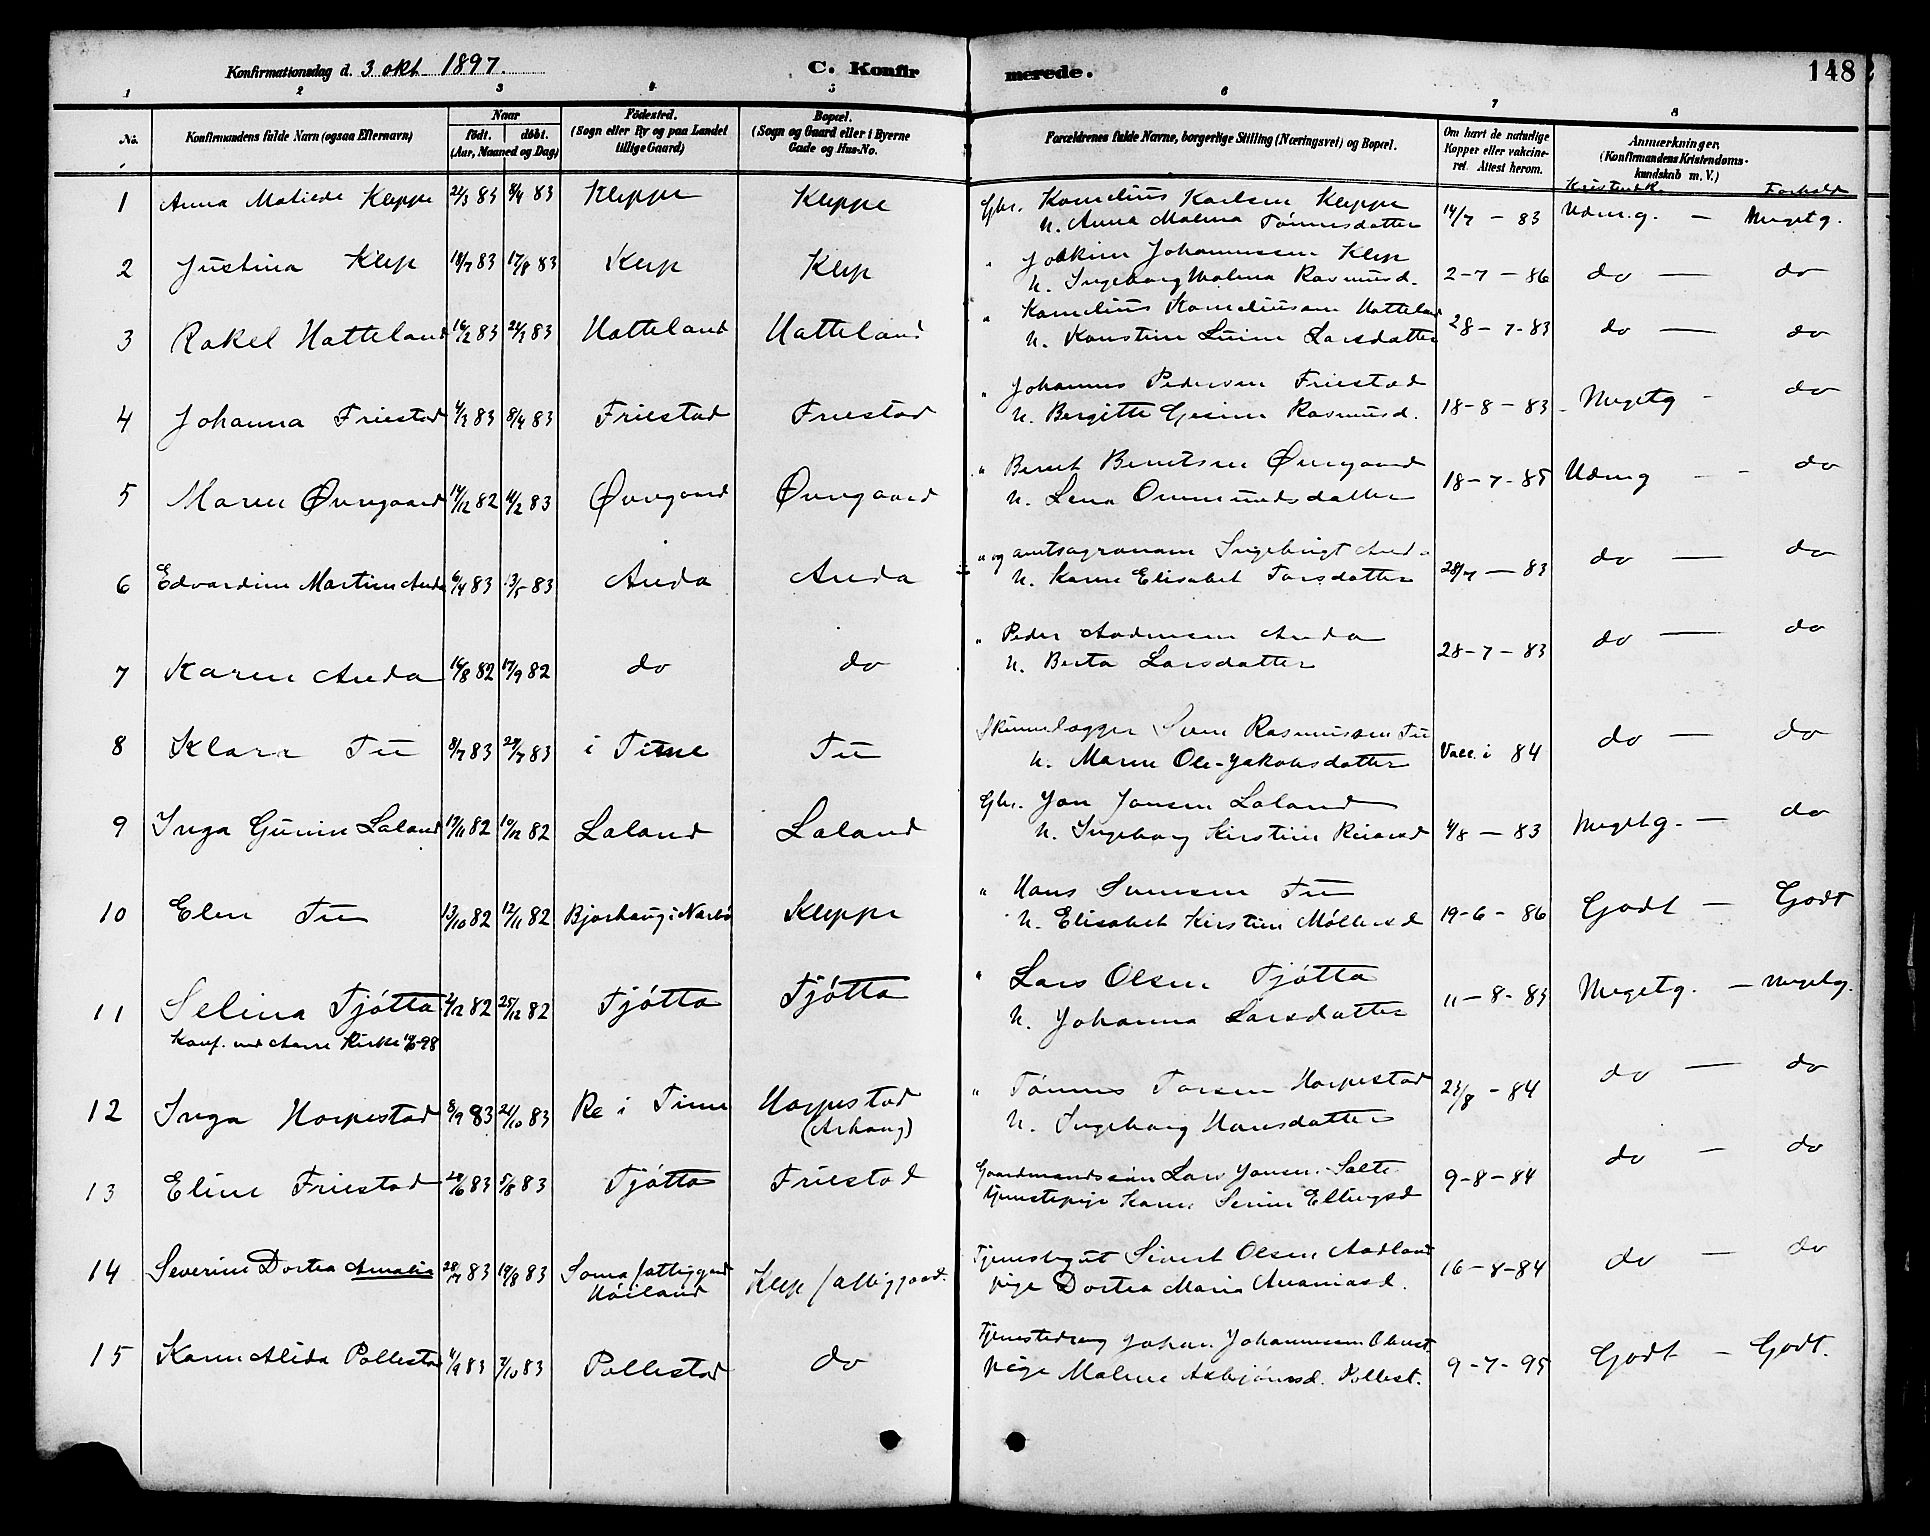 Konfirmationsdag d. 3 okt. 1897. C. Konfirmerede. 148
1 2 3 4 5 6 7 8
No. Konfirmandens fulde Navn (ogsaa Efternavn) Naar født. døbt. (Aar, Maaned og Dag) Fødested. (Sogn eller By og paa Landet tillige Gaard) Bopæl. (Sogn og Gaard eller i Byerne Gade og Hus-No. Forældrenes fulde Navne, borgerlige Stilling (Næringsvei) og Bopæl. Om havt de naturlige Kopper eller vakcineret. Attest herom. Anmærkninger. (Konfirmandens Kristendomskundskab m. V.)
Kristendk. Forhold
1 Anna Matilde Kleppe 83 8/4 83 Kleppe Kleppe Gbr. Kornelius Karlsen Kleppe 14/7 - 83 Udm.g. - Megetg.
H. Anna Malena Tønnesdatter
2 Justina Klep 18/7 83 17/8 83 Klep Klep " Joakim Johannessen Klep 2-7-86 do - do
H. Ingeborg Malena Rasmusd.
3 Rakel Hatteland 16/2 83 83 Hatteland Hatteland " Kornelius Korneliussen Hatteland 28-7-83 do - do
H. Karstine Larsdatter
4 Johanna Friestad 83 8/4 83 Friestad Friestad " Johannes Pedersen Friestad 18-8-83 Megetg - do
H. Bergitte Gesine Rasmusd.
5 Maren Øvregaard 14/12 82 4/2 83 Øvregaard Øvregaard " Bernt Berntsen Øvregaard 18-7-85 Udmg - do
H. Lena Ommundsdatter
6 Edvardine Martine Anda 6/4 83 3/5 83 Anda Anda " og amtsagronom Ingebrigt Anda 28/7 - 83 do - do
H. Karen Elisabet Torsdatter
7 Karen Anda 16/8 82 17/9 82 do do " Peder Andersen Anda 28-7-83 do - do
H. Berta Larsdatter
8 Klara Tu 8/7 83 29/7 83 i Time Tu Skinnelægger Sven Rasmussen Tu Vacc. i 84 do - do
H. Maren Ole-Jakobsdatter
9 Inga Gurine Laland 19/11 82 10/12 82 Laland Laland Gbr. Jon Jonsen Laland 4/8 - 83 Megetg. - do
H. Ingeborg Kirstine
10 Elen Tu 13/10 82 12/11 82 Bjorhaug i Nærbø Kleppe " Hans Svensen Tu 19-6-86 Godt - Godt
H. Elisabet Kirstine Møllersd
11 Selina Tjøtta 2/12 82 25/12 82 Tjøtta Tjøtta " Lars Olsen Tjøtta 11-8-83 Megetg. - Megetg.
Konf. ved Kirke 98 H. Johanna Larsdatter
12 Inga Horpestad 8/9 83 21/10 83 Re i Time Horpestad " Tønnes Torsen Horpestad 23/8 - 84 do - do
(Arhaug) H. Ingeborg Hansdatter
13 Eline Friestad 83 5/8 83 Tjøtta Friestad Gaardmandssøn Lars Jonsen Salte 9-8-84 do - do
tjenestepige Karen Serine Ellingsd
14 Severine Dortea Amalie 28/7 83 19/8 83 Soma fattiggaard Klep fattiggaard. Tjenestegut Sivert Olsen Aadland 16-8-84 do - do
Høiland pige Dortea Marie Ananiasd.
15 Karen Alida Pollestad 4/9 83 7/10 83 Pollestad do Tjenestedreng Johan Johannessen 9-7-95 Godt - Godt.
pige Malene Asbjørnsd. Pollest.